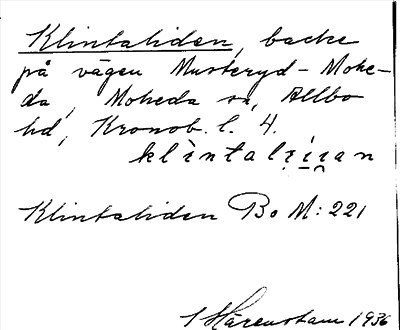 Klintaliden, backe
på vägen Musteryd - Mohe-
da, Moheda sn, Allbo
hd, Kronob. l. 4.
klìntalían
Klintaliden Bo M: 221
Härenstam 1936